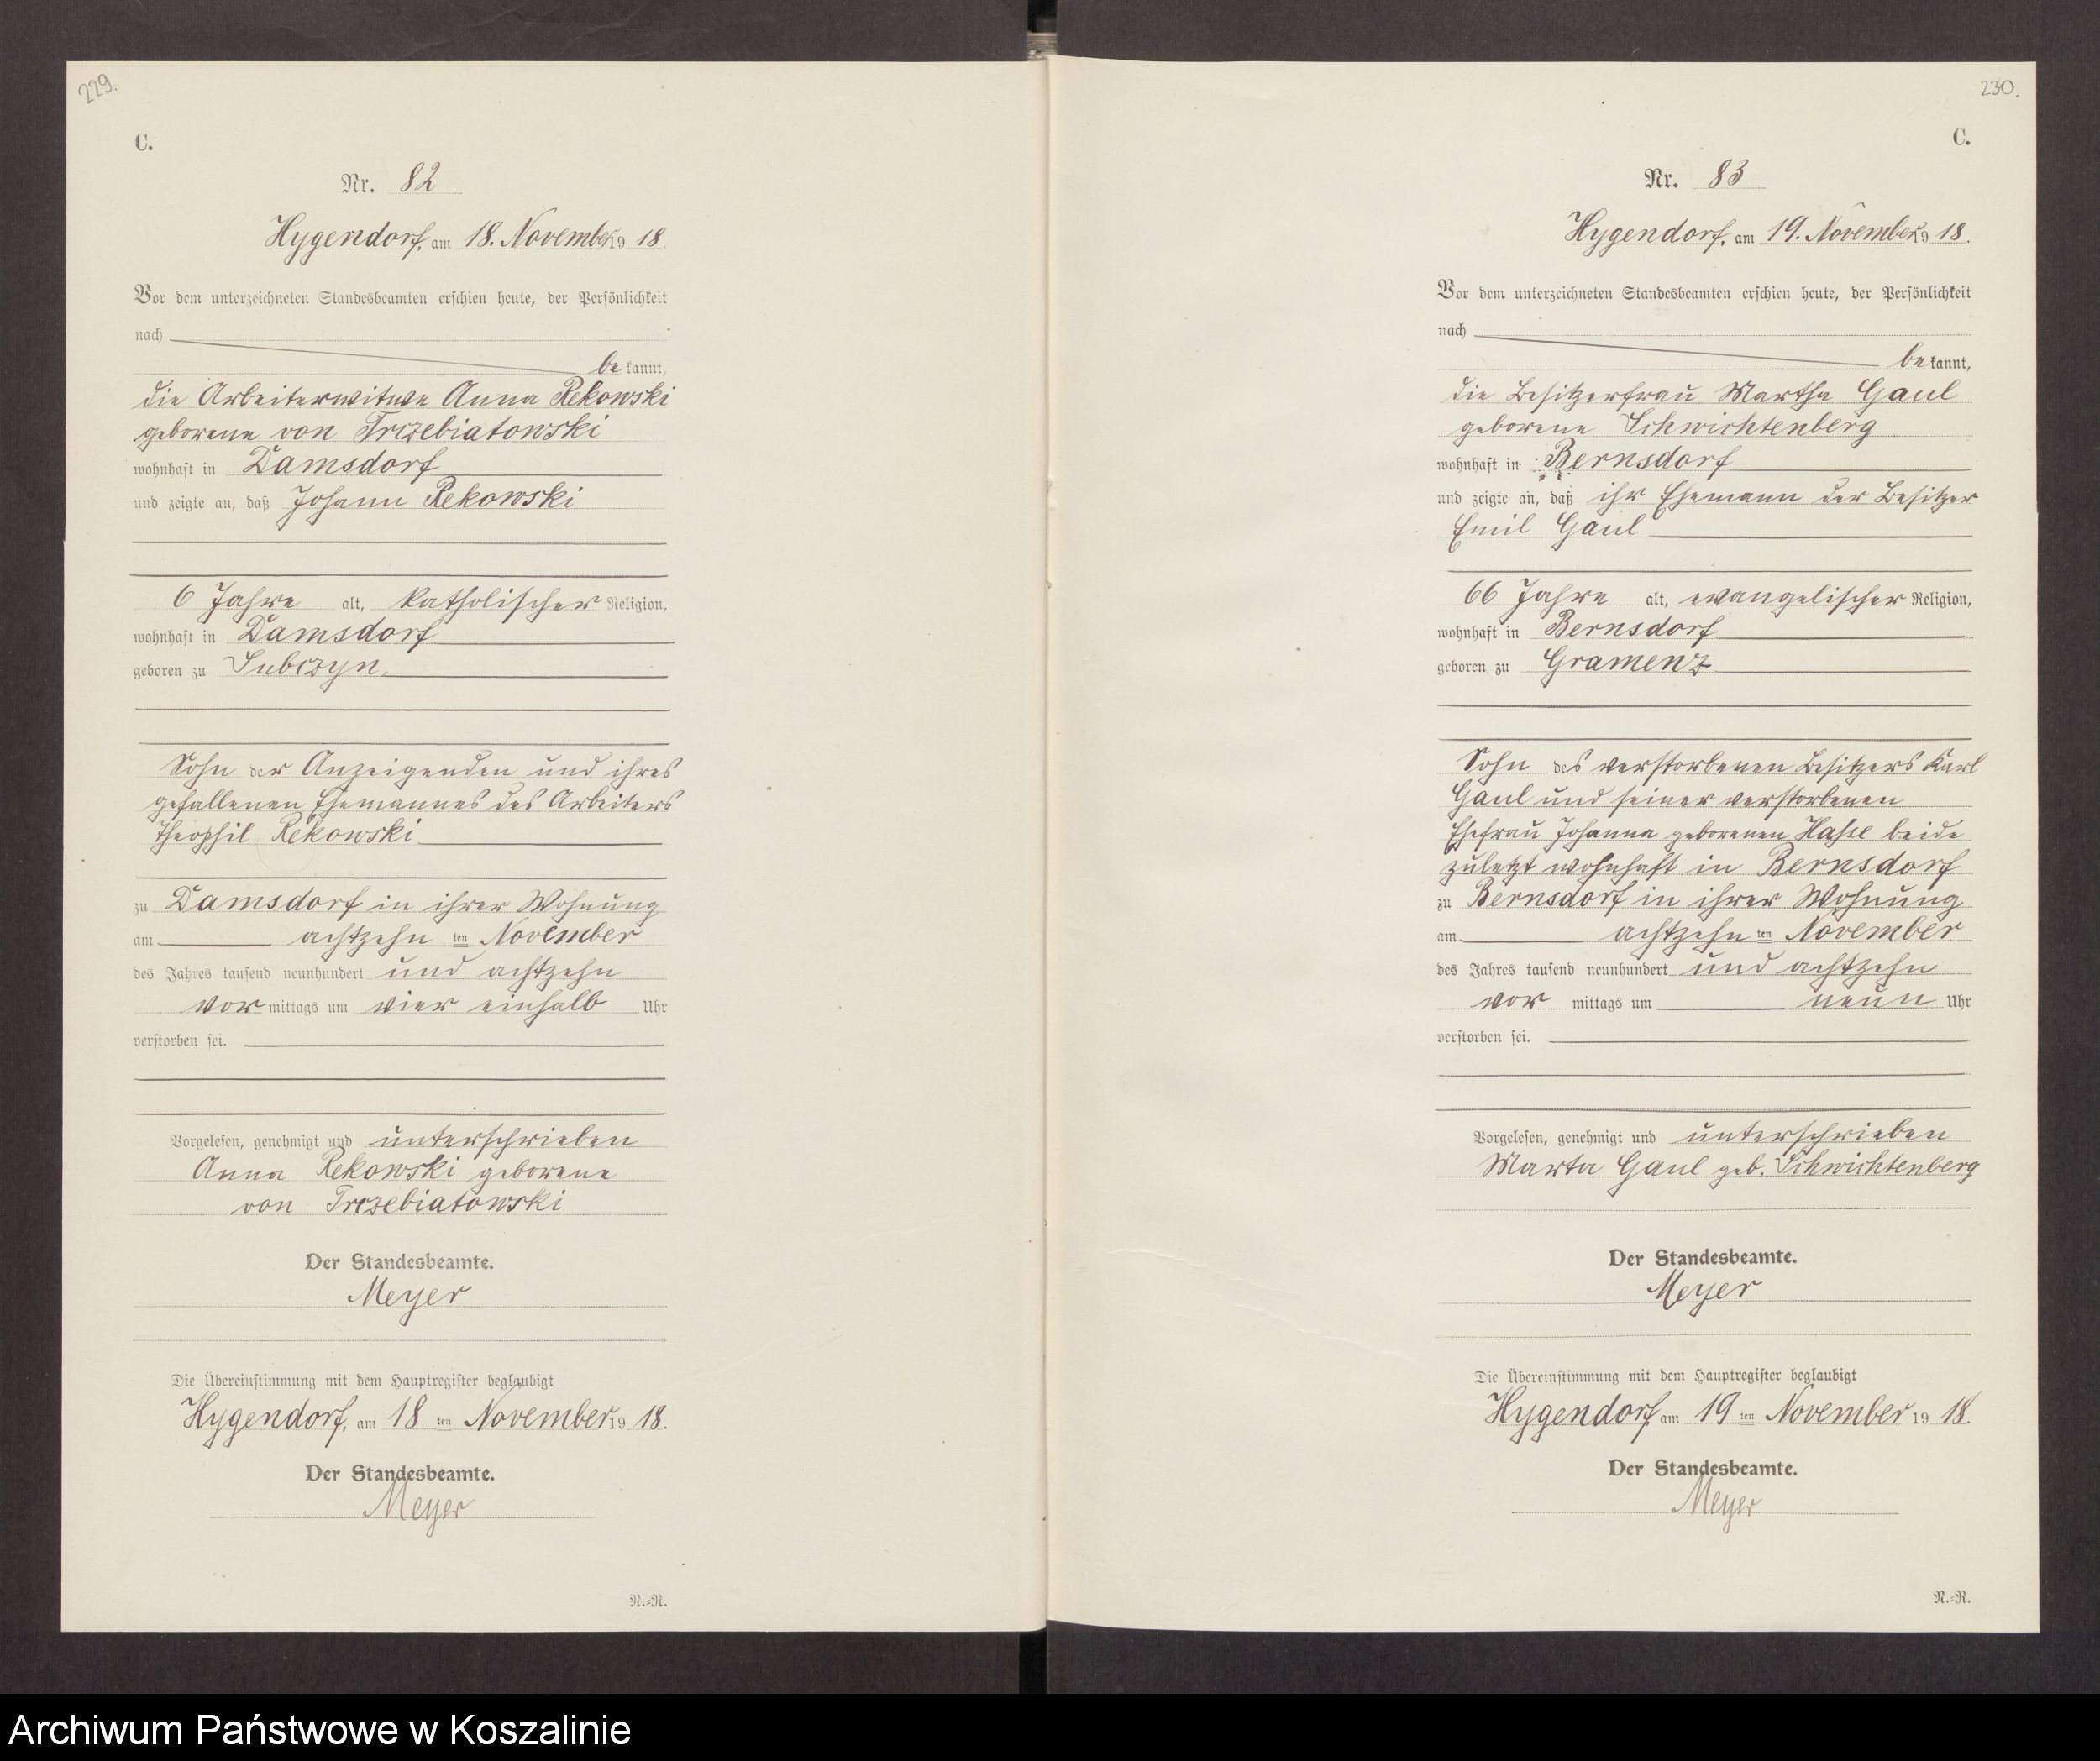 229.
C.
Nr. 82
Hygendorf, am 18. November 1918.
Vor dem unterzeichneten Standesbeamten erschien heute, der Persönlichkeit
nach
bekannt,
die Arbeiterwitwe Anna Rekowski
geborene von Trzebiatowski
wohnhaft in Damsdorf
und zeigte an, daß Johann Rekowski
6 Jahre alt, katholischer Religion,
wohnhaft in Damsdorf
geboren zu Subczyn
Sohn der Anzeigenden und ihres
gefallenen Ehemannes des Arbeiters
Theophil Rekowski
zu Damsdorf in ihrer Wohnung
am achtzehnten November
des Jahres tausend neunhundert und achtzehn
vormittags um vier einhalb Uhr
verstorben sei.
Vorgelesen, genehmigt und unterschrieben
Anna Rekowski geborene
von Trzebiatowski
Der Standesbeamte.
Meyer
Die Übereinstimmung mit dem Hauptregister beglaubigt
Hygendorf, am 18ten November 1918.
Der Standesbeamte.
Meyer
N.=R.
230.
C.
Nr. 83
Hygendorf, am 19. November 1918.
Vor dem unterzeichneten Standesbeamten erschien heute, der Persönlichkeit
nach
bekannt,
die Besitzerfrau Martha Gaul
geborene Schwichtenberg
wohnhaft in Bernsdorf
und zeigte an, daß ihr Ehemann der Besitzer
Emil Gaul
66 Jahre alt, evangelischer Religion,
wohnhaft in Bernsdorf
geboren zu Gramenz
Sohn des verstorbenen Besitzers Karl
Gaul und seiner verstorbenen
Ehefrau Johanna geborenen Hasse beide
zuletzt wohnhaft in Bernsdorf
zu Bernsdorf in ihrer Wohnung
am achtzehnten November
des Jahres tausend neunhundert und achtzehn
vormittags um neun Uhr
verstorben sei.
Vorgelesen, genehmigt und unterschrieben
Marta Gaul geb. Schwichtenberg
Der Standesbeamte.
Meyer
Die Übereinstimmung mit dem Hauptregister beglaubigt
Hygendorf, am 19ten November 1918.
Der Standesbeamte.
Meyer
N.=R.
Archiwum Państwowe w Koszalinie